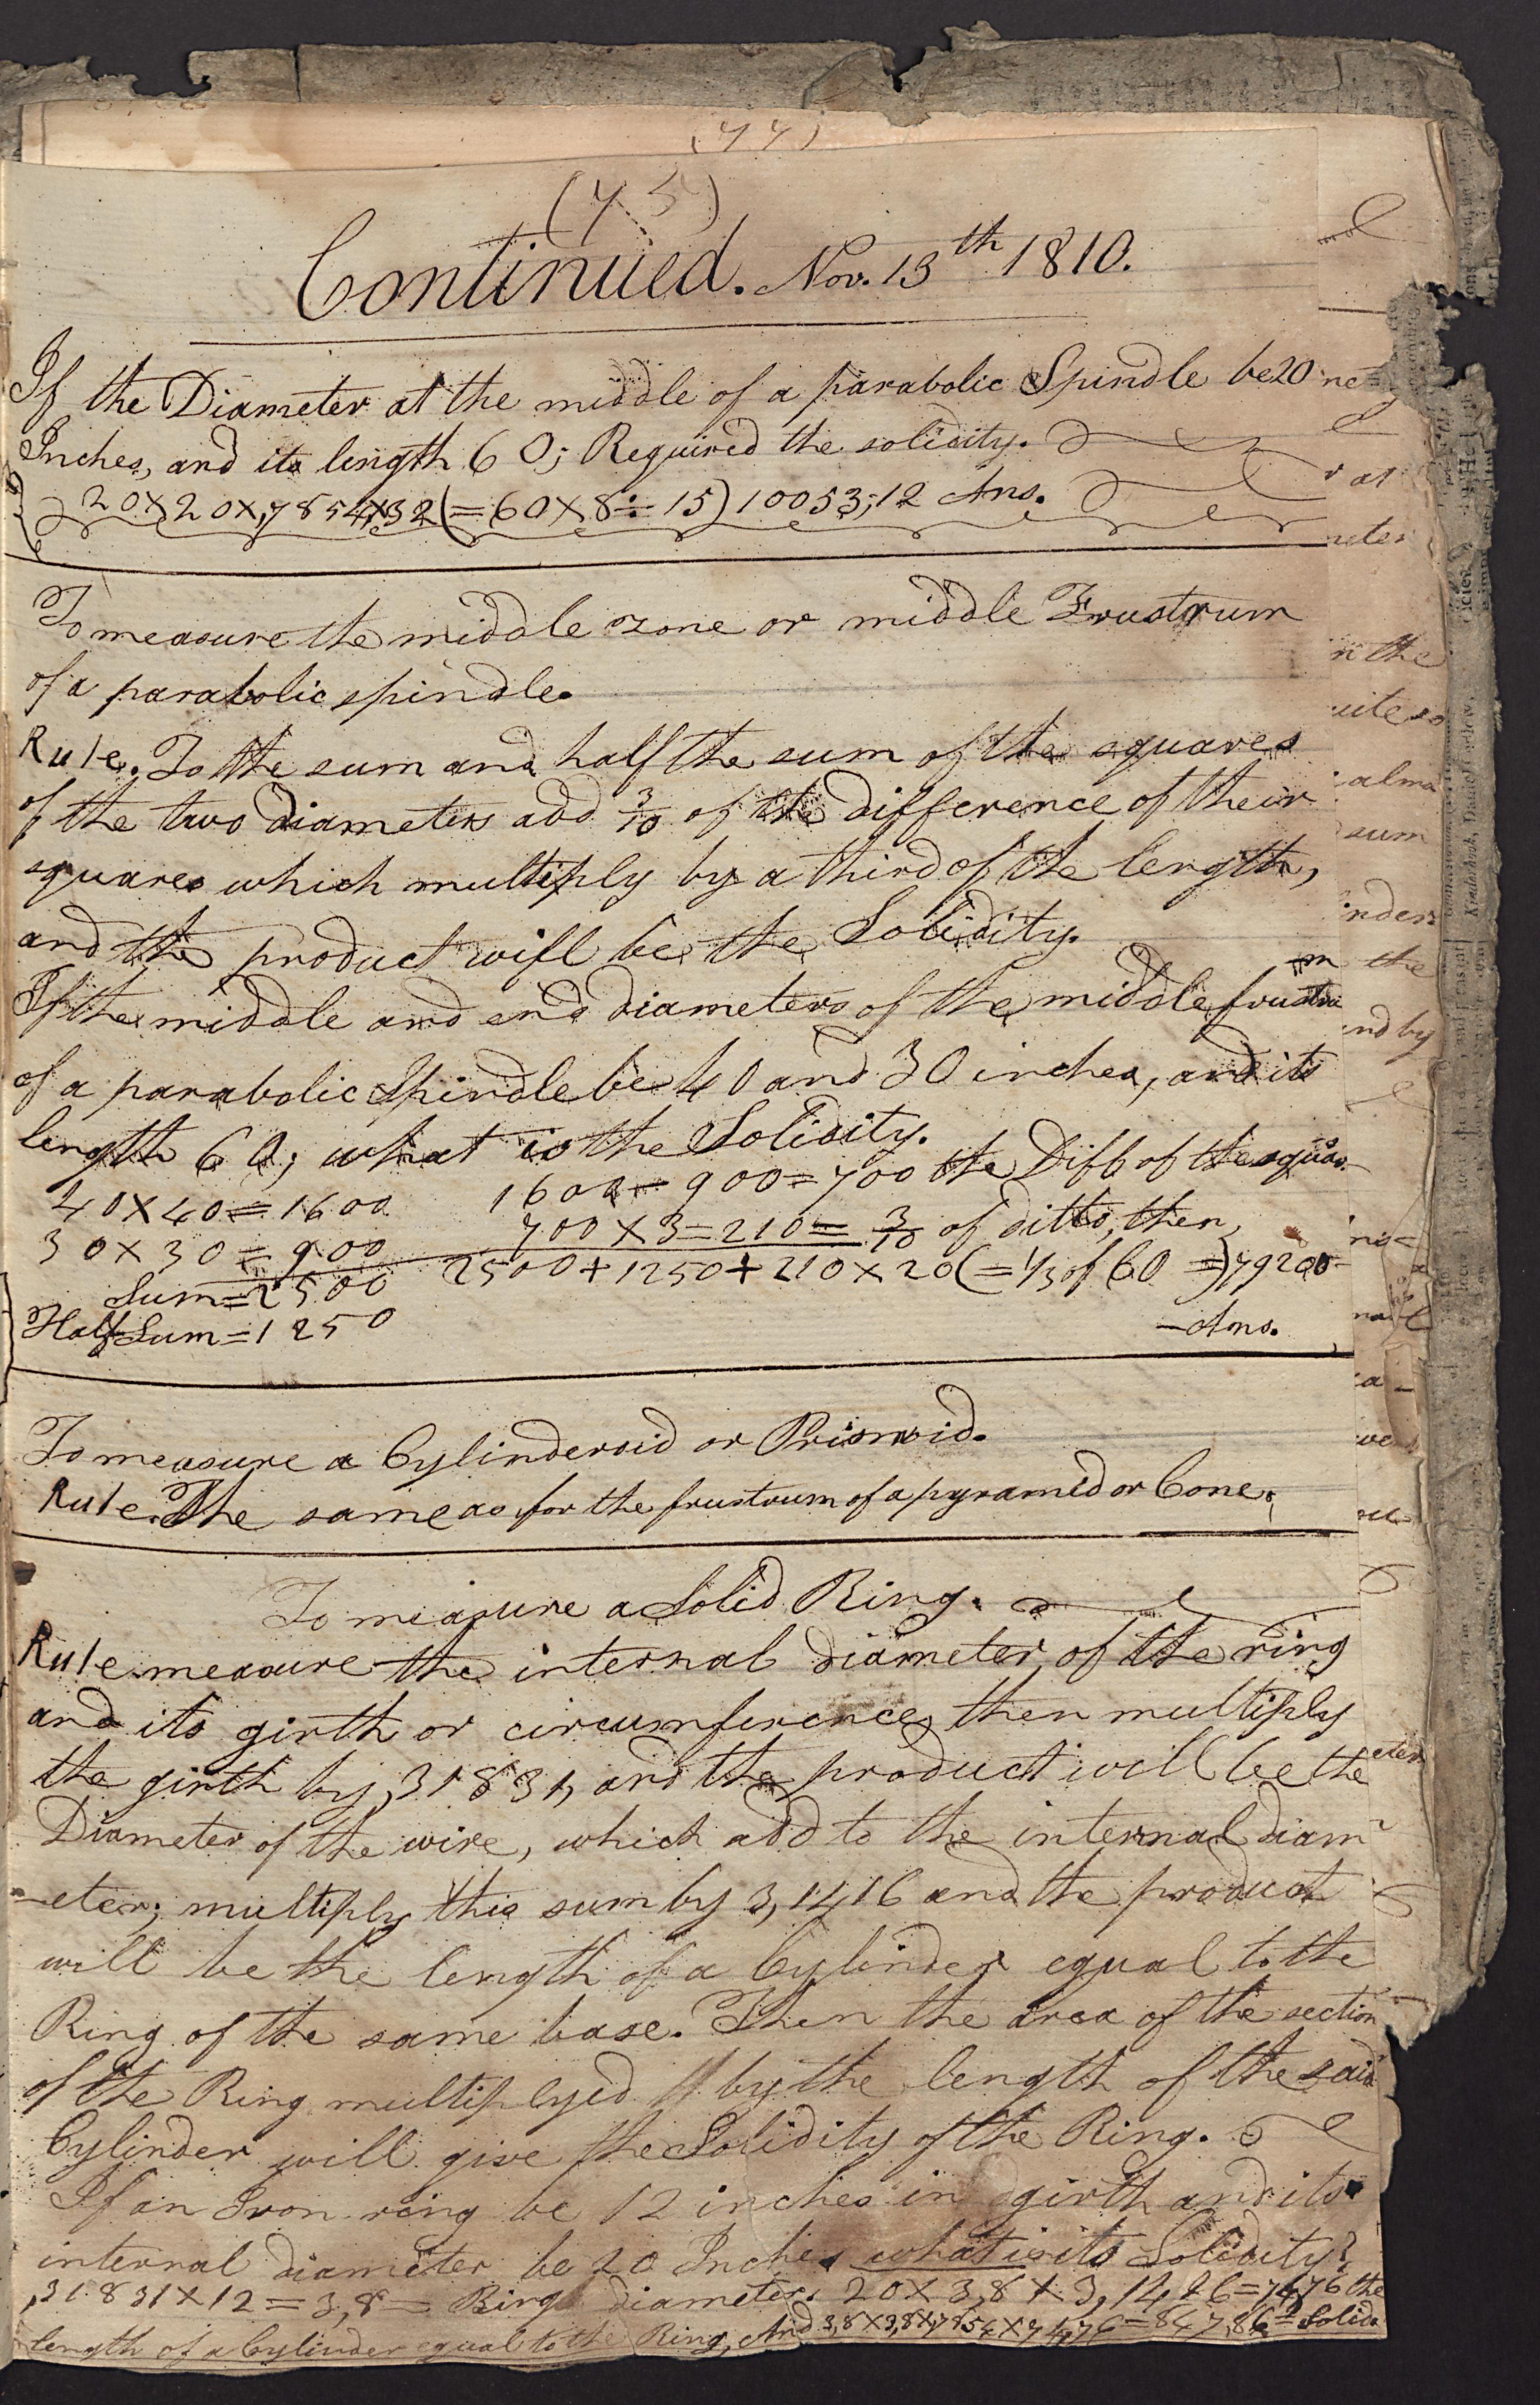 (45)
Continued. Nov. 13th 1810.
If the Diameter at the middle of a parabolic Spindle be 20
Inches, and its length 60; Required the solidity.
20×20×,7854×32(=60×8÷15)10053,12 Ans.
To measure the middle zone or middle Frustrum
of a parabolic spindle.
Rule. To the sum and half the sum of the squares
of the two diameters add 3/10 of the difference of their
squares which multiply by a third of the length,
and the product will be the Solidity.
If the middle and end diameters of the middle frustrum
of a parabolic Spindle be 40 and 30 inches, and its
length 60; what is the Solidity.
40×40=1600 1600-900=700 the Diff of the squar
30×30=900 700×3=210=3/10 of ditto, then,
Sum=2500 2500+1250+210×20(=1/3 of 60=)79200
Half Sum=1250 —Ans.
To measure a Cylinderoid or Prismoid.
Rule. The same as for the frustrum of a pyramed or Cone;
To measure a Solid Ring.
Rule measure the internal diameter of the ring
and its girth or circumference, then multiply
the girth by ,31831, and the product will be the
Diameter of the wire, which add to the internal diam
-eter; multiply this sum by 3,1416 and the product
will be the length of a Cylinder equal to the
Ring of the same base. Then the area of the section
of the Ring multiplyed by the length of the said
Cylinder will give the Solidity of the Ring.
If an Iron ring be 12 inches in girth and its
internal diameter be 20 Inches what is its Solidity?
,31831×12=3,8= Ring diameter. 20×3,8×3,1416=74,76 the
length of a Cylinder equal to the Ring, And 3,8×3,8×,7854×74,76=847,86= Solid